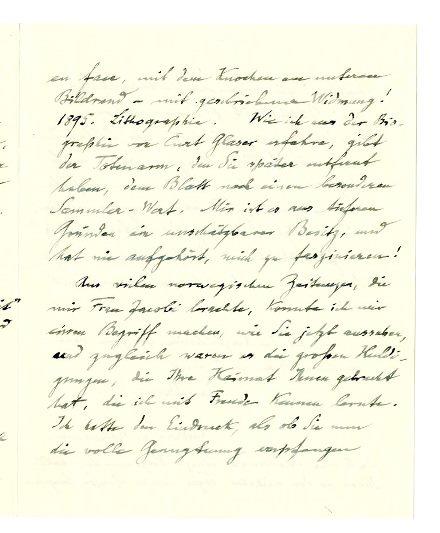 en face, mit dem Knochen am unteren
Bildrand – mit geschriebener Widmung!
1895. Lithographie. Wie ich aus der Bio-
graphie von Curt Glaser erfahre, gibt
der Totenarm, den Sie später entfernt
haben, dem Blatt noch einen besonderen
Sammler-Wert. Mir ist es aus tieferen
Gründen ein unschätzbarer Besitz, und
hat nie aufgehört, mich zu faszinieren!
Aus vielen norwegischen Zeitungen, die
mir Frau Jacobi brachte, konnte ich mir
einen Begriff machen, wie Sie jetzt aussehen,
und zugleich waren es die großen Huldi-
gungen, die Ihre Heimat Ihnen gebracht
hat, die ich mit Freude kennen lernte.
Ich hatte den Eindruck, als ob Sie nun
die volle Genugtuung empfangen